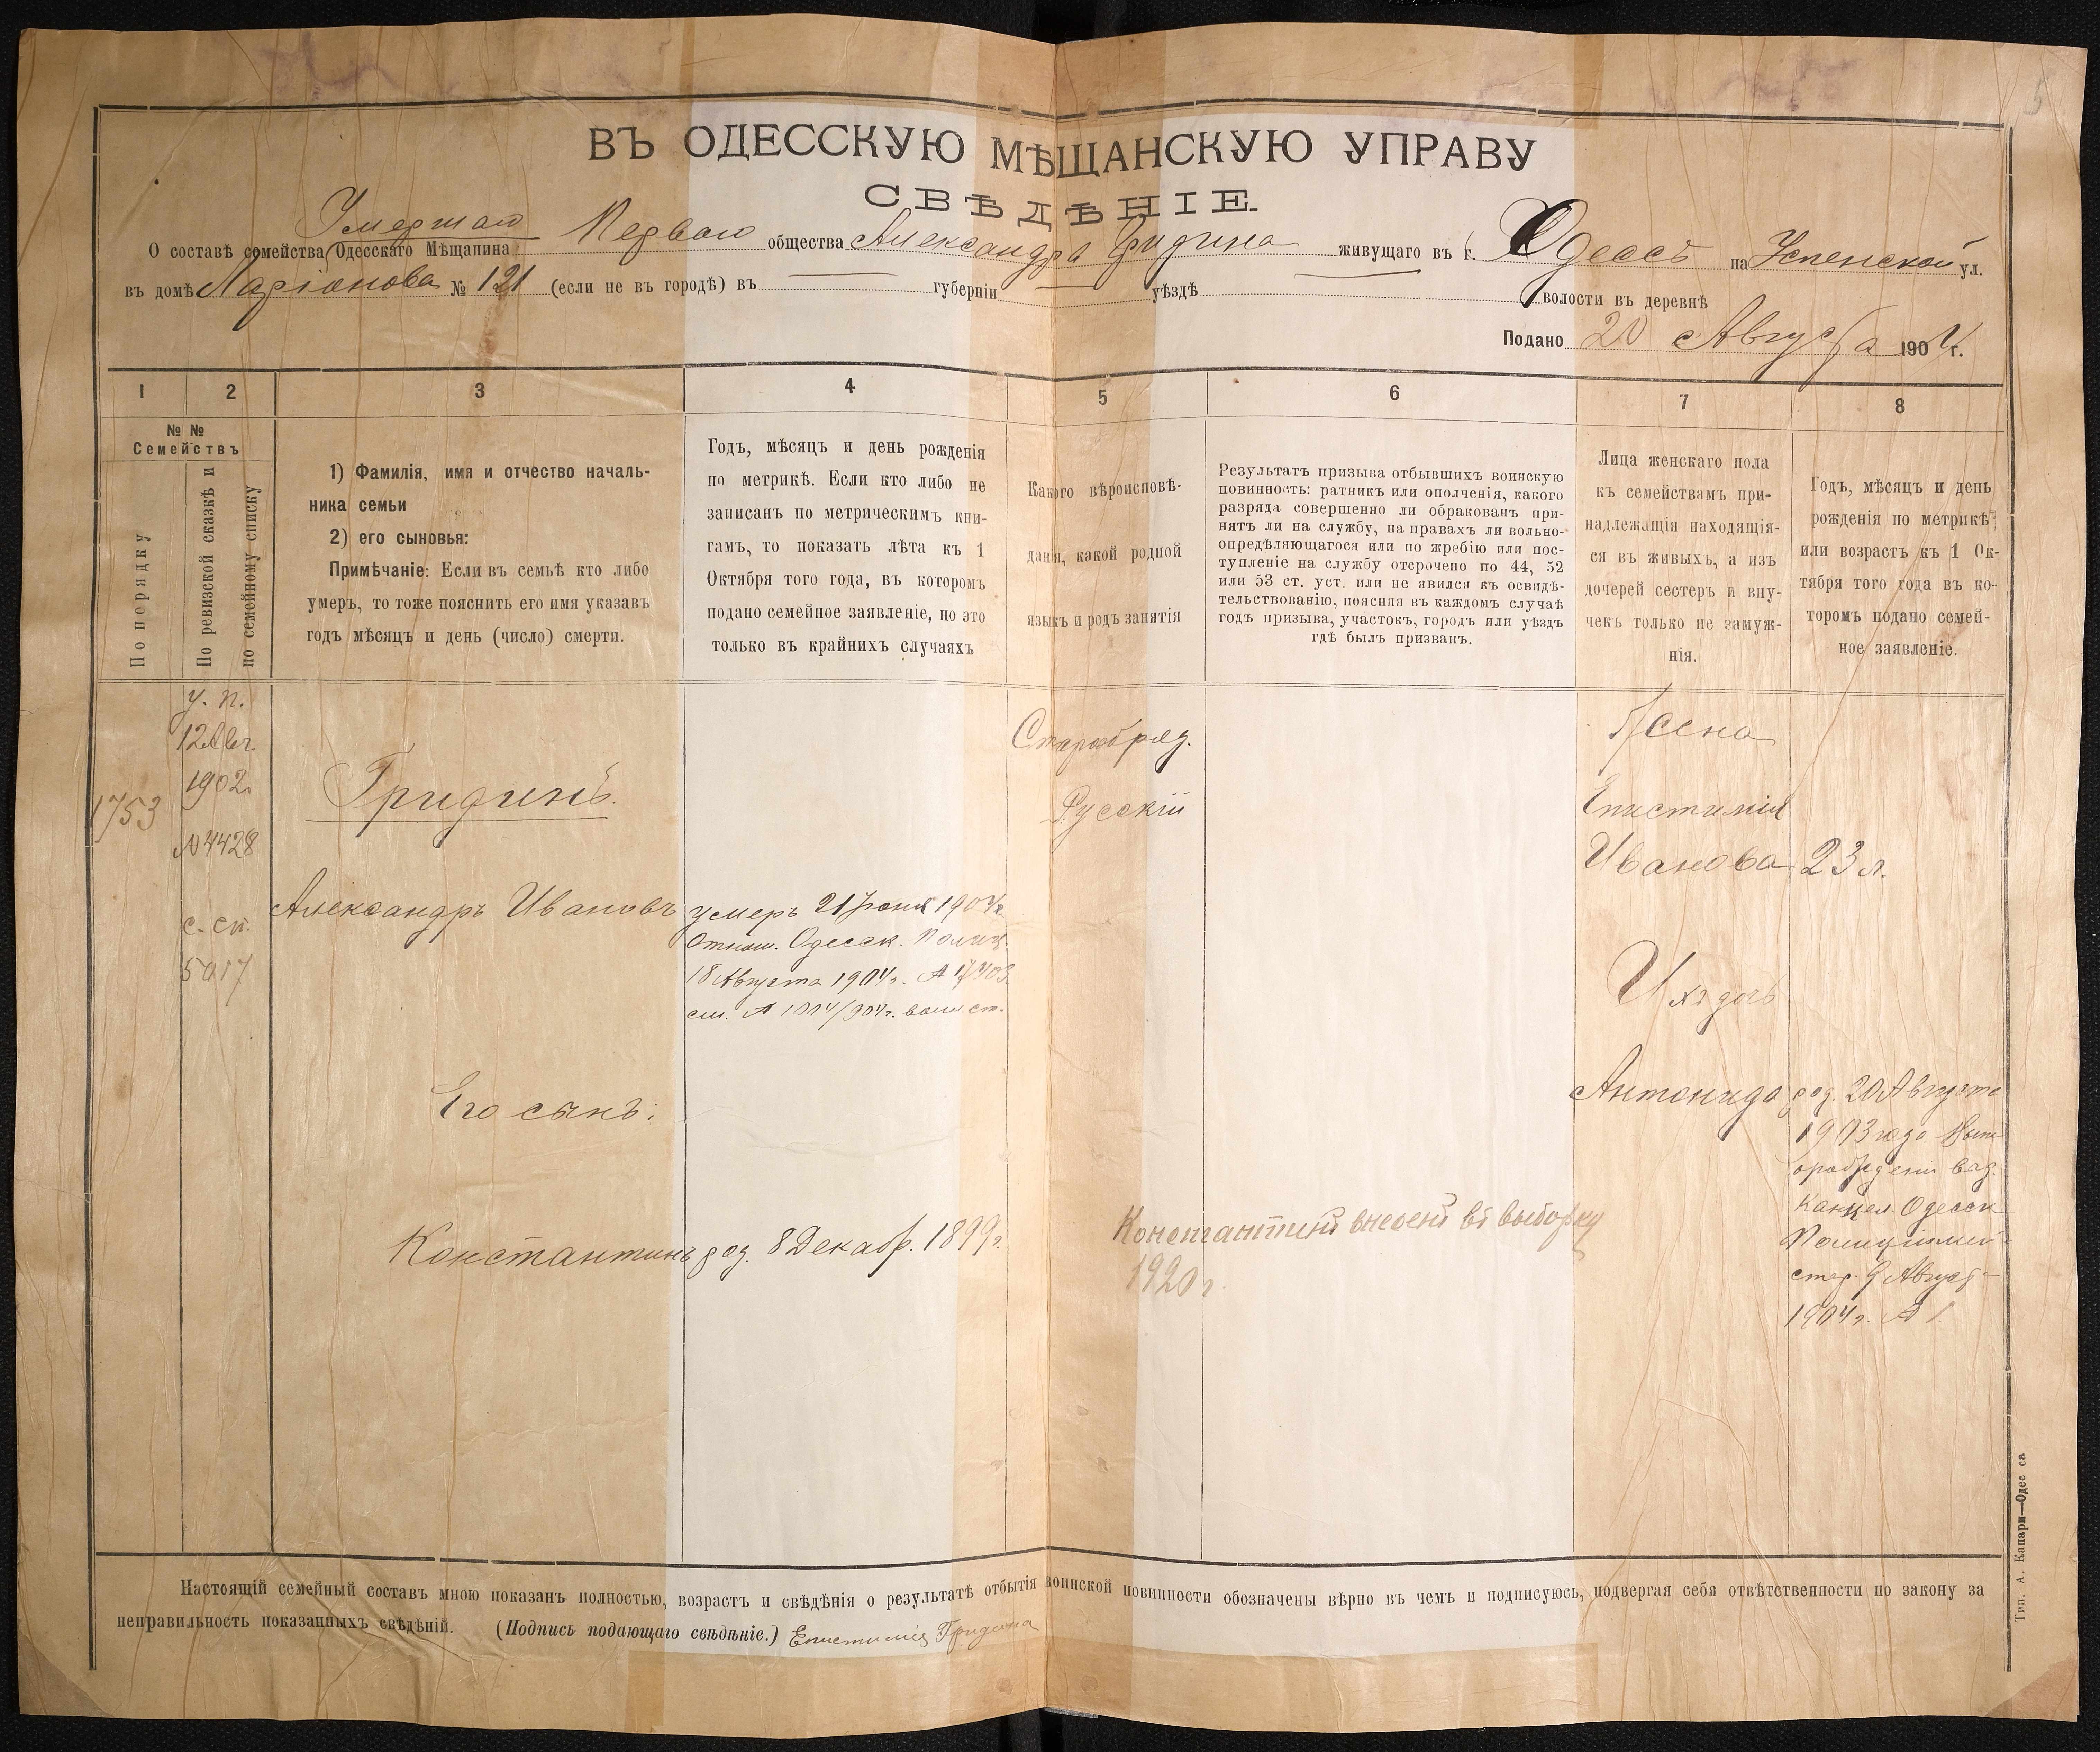 ВЪ ОДЕССКУЮ МѢЩАНСКУЮ УПРАВУ
СВѢДѢНІЕ.
Умершаго
О составѣ семейства Одесскаго Мѣщанина Перваго общества Александра Гридина живущаго въ г. Одессѣ на Успенской ул.
въ домѣ Ларіонова № 121 (если не въ городѣ) въ губерніи уѣздѣ волости въ деревнѣ
Подано 20 Августа 1904 г.
1 2 3 4 5 6 7 8
№ №
Семействъ
По порядку
По ревизской сказкѣ и
по семейному списку
1) Фамилія, имя и отчество началь-
ника семьи
2) его сыновья:
Примѣчаніе: Если въ семьѣ кто либо
умеръ, то тоже пояснить его имя указавъ
годъ мѣсяцъ и день (число) смерти.
Годъ, мѣсяцъ и день рожденія
по метрикѣ. Если кто либо не
записанъ по метрическимъ кни-
гамъ, то показать лѣта къ 1
Октября того года, въ которомъ
подано семейное заявленіе, но это
только въ крайнихъ случаяхъ
Какого вѣроисповѣ-
данія, какой родной
языкъ и родъ занятія
Результатъ призыва отбывшихъ воинскую
повинность: ратникъ или ополченія, какого
разряда совершенно ли обракованъ при-
нятъ ли на службу, на правахъ ли вольно-
опредѣляющагося или по жребію или пос-
тупленіе на службу отсрочено по 44, 52
или 53 ст. уст. или не явился къ освидѣ-
тельствованію, поясняя въ каждомъ случаѣ
годъ призыва, участокъ, городъ или уѣздъ
гдѣ былъ призванъ.
Лица женскаго пола
къ семействамъ при-
надлежащія находящія-
ся въ живыхъ, а изъ
дочерей сестеръ и вну-
чекъ только не замуж-
нія.
Годъ, мѣсяцъ и день
рожденія по метрикѣ
или возрастъ къ 1 Ок-
тября того года въ ко-
торомъ подано семей-
ное заявленіе.
1753
у. п.
12 Авг.
1902
№ 4428
с. сп.
5017
Гридинъ.
Александръ Ивановъ
Его сынъ:
Константинъ
умеръ 21 Іюня 1904 г.
Отнош. Одесск. Полиц.
18 Августа 1904 г. № 17403
род. 8 Декабр. 1899 г.
Старообряд.
Русскій
Константинъ внесенъ въ выборку
1920 г
Жена
Епистимія
Иванова 23 л.
Ихъ дочь
Антонида
род. 20 Августа
1903 года
Канцел. Одесск
9 Август
1904 г. №
Настоящій семейный составъ мною показанъ полностью, возрастъ и свѣдѣнія о результатѣ отбытія воинской повинности обозначены вѣрно въ чемъ и подписуюсь, подвергая себя отвѣтственности по закону за
неправильность показанныхъ свѣдѣній. (Подпись подающаго свѣдѣніе.) Епистимія Гридина
Тип. А. Капари—Одес са
5